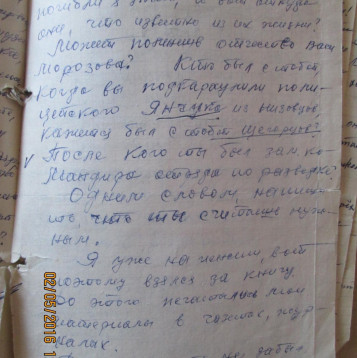 погибли в
она, что известно из их жизни?
Может помнишь отчество Васи
Морозова? Кто был с тобой,
когда вы подбарацлили поли-
цейского Янчука из Низовцы
кажется был с тобой Щегрин?
V После кого ты был зам. ко-
мандира отряда по разведке?
Одним словом, напиши
то, что ты считаешь нуж-
ным.
Я уже на пенсии, вот
поэтому взялся за книгу
До этого печатались мои
материалы в газетах, жур-
налах.
забыл
02/05/2016